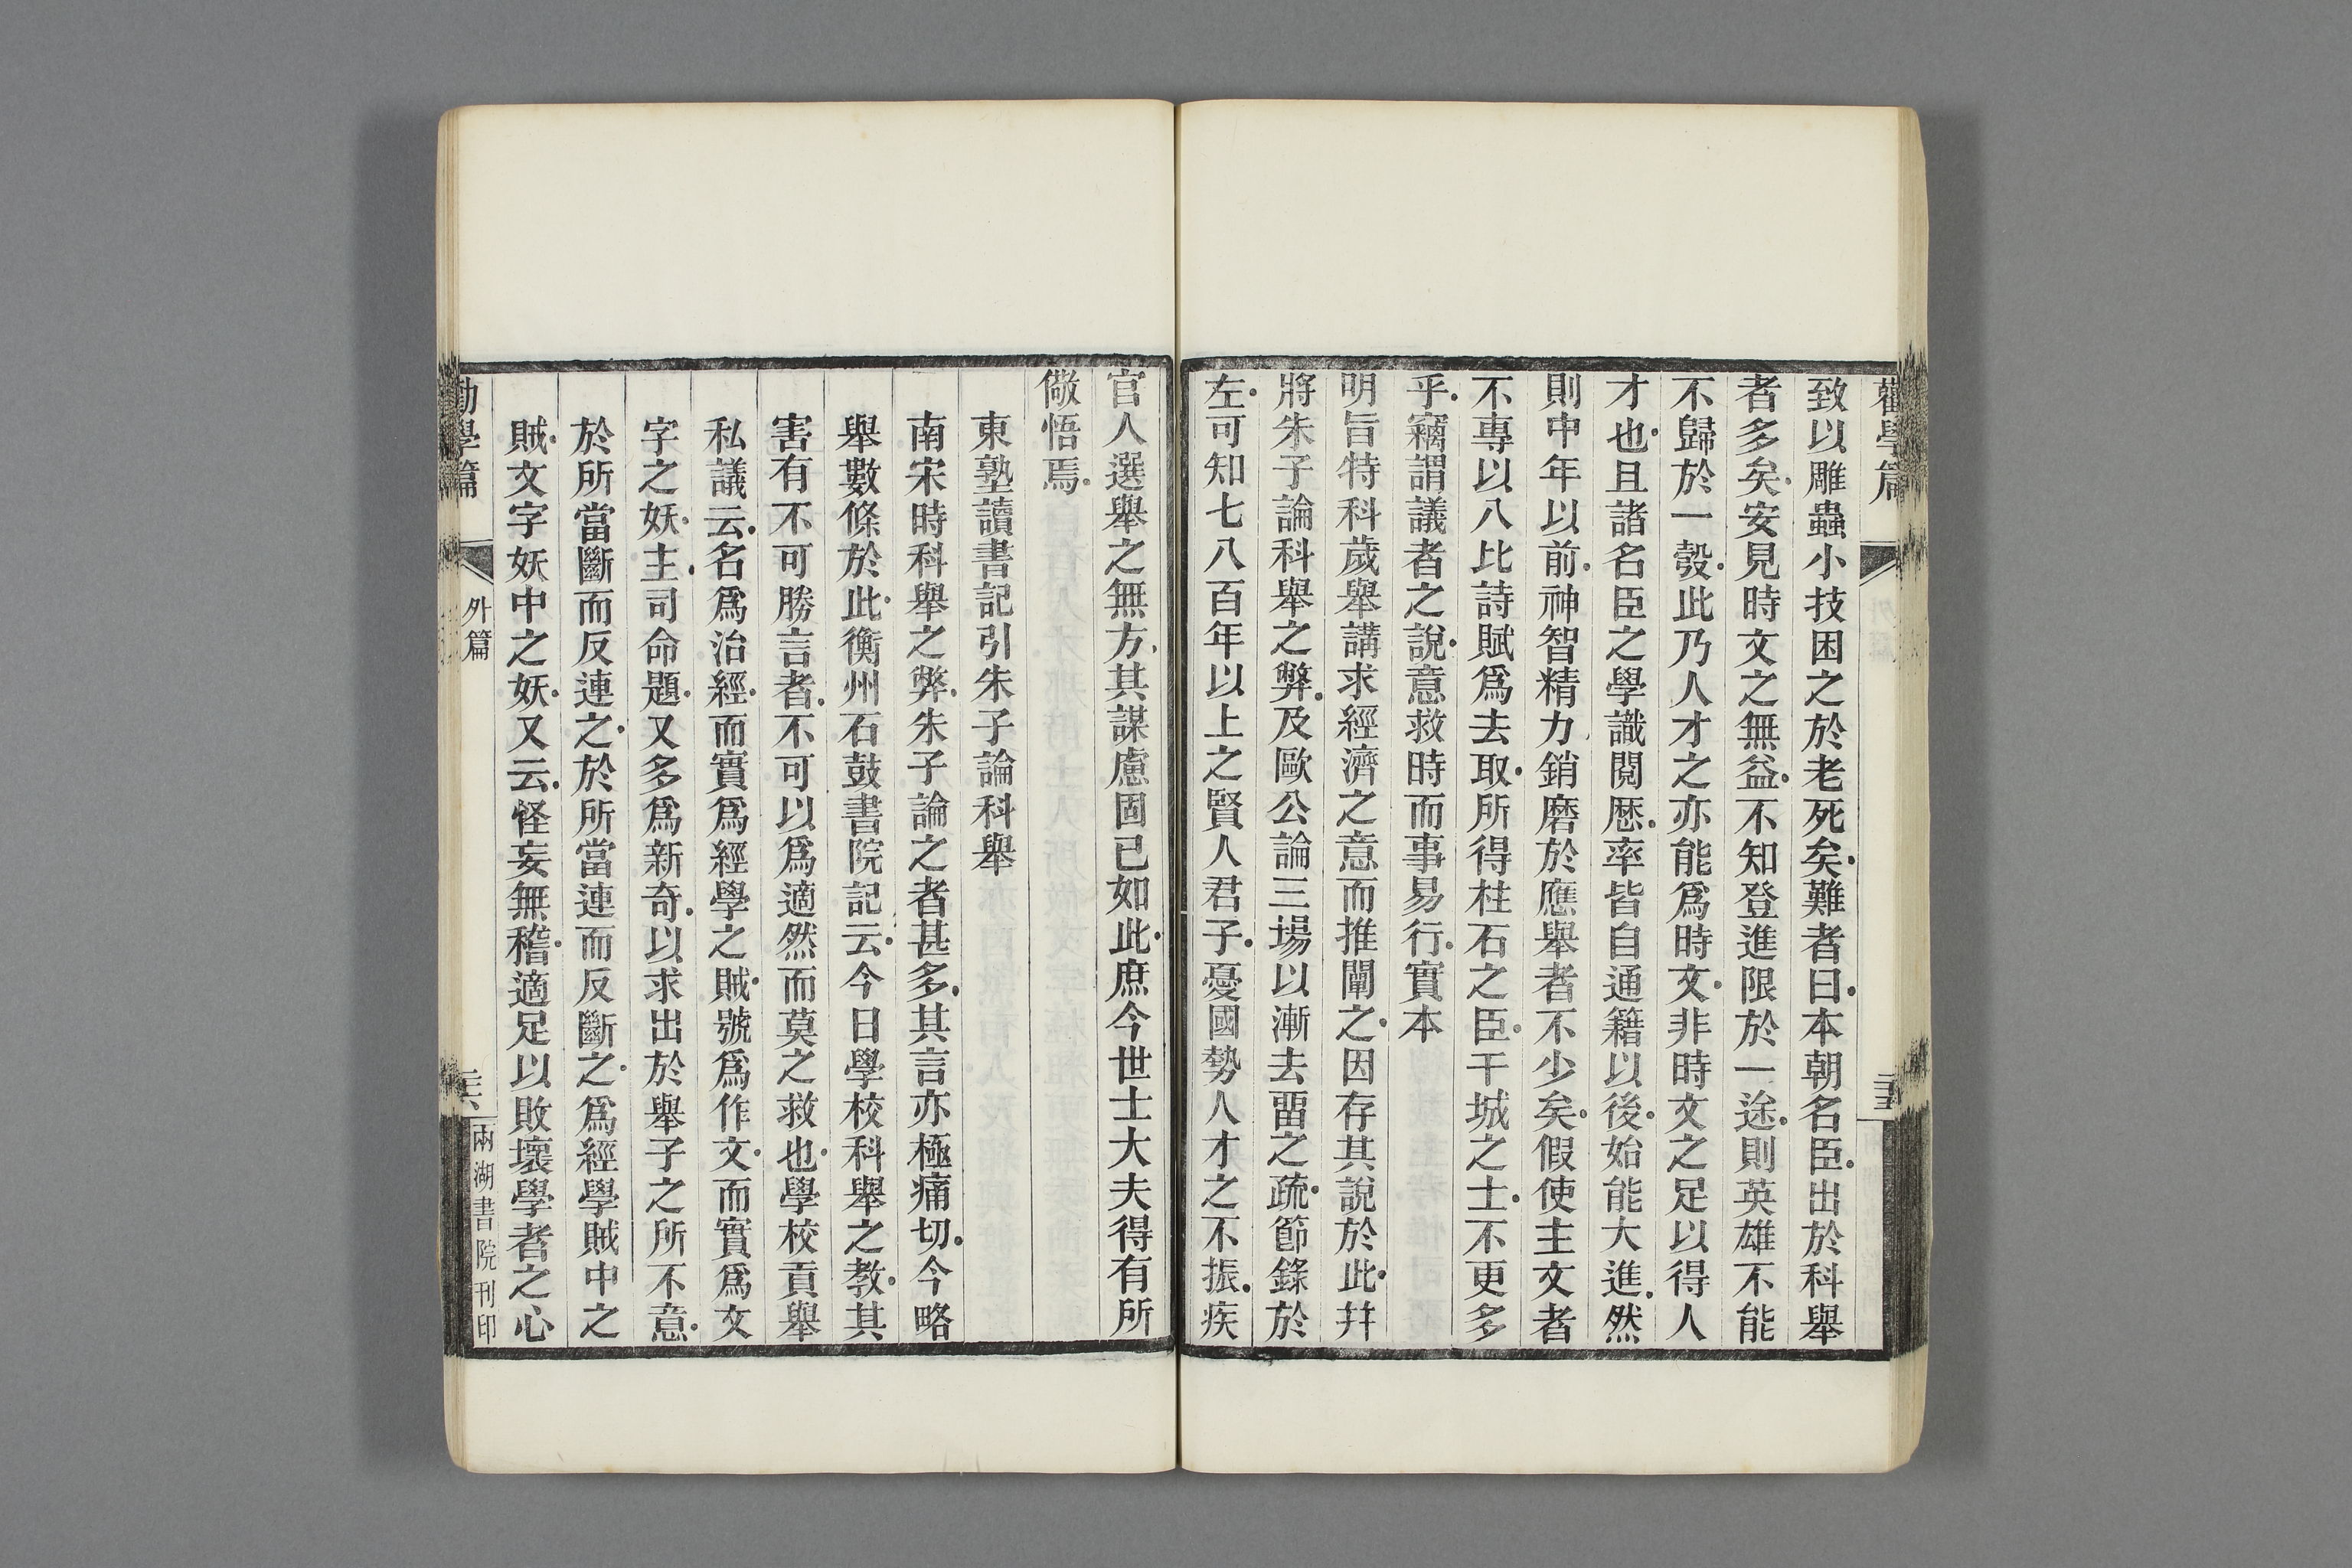 勸學篇
三五
致以雕蟲小技困之於老死矣難者曰本朝名臣出於科舉
者多矣安見時文之無益不知登進限於一途則英雄不能
不歸於一彀此乃人才之亦能爲時文非時文之足以得人
才也且諸名臣之學識閱歷率皆自通籍以後始能大進然
則中年以前神智精力銷磨於應舉者不少矣假使主文者
不專以八比詩賦爲去取所得柱石之臣干城之士不更多
乎竊謂議者之說意救時而事易行實本
明旨特科歲舉講求經濟之意而推闡之因存其說於此幷
將朱子論科舉之弊及歐公論三場以漸去畱之疏節錄於
左可知七八百年以上之賢人君子憂國勢人才之不振疾
官人選舉之無方其謀慮固已如此庶今世士大夫得有所
儆悟焉
東塾讀書記引朱子論科舉
南宋時科舉之弊朱子論之者甚多其言亦極痛切今略
舉數條於此衡州石鼓書院記云今日學校科舉之教其
害有不可勝言者不可以爲適然而莫之救也學校貢舉
私議云名爲治經而實爲經學之賊號爲作文而實爲文
字之妖主司命題又多爲新奇以求出於舉子之所不意
於所當斷而反連之於所當連而反斷之爲經學賊中之
賊文字妖中之妖又云怪妄無稽適足以敗壞學者之心
勸學篇
外篇
三六
兩湖書院刊印